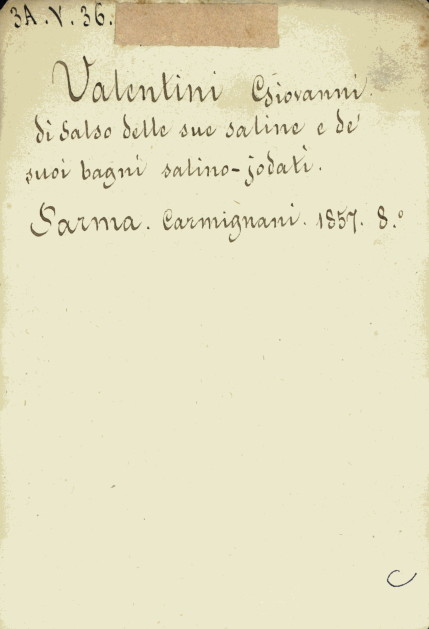 3A.V.36.
Valentini Giovanni
di Salso delle sue saline e de'
suoi bagni salino-jodati.
Parma. Carmignani. 1857. 8.°
C